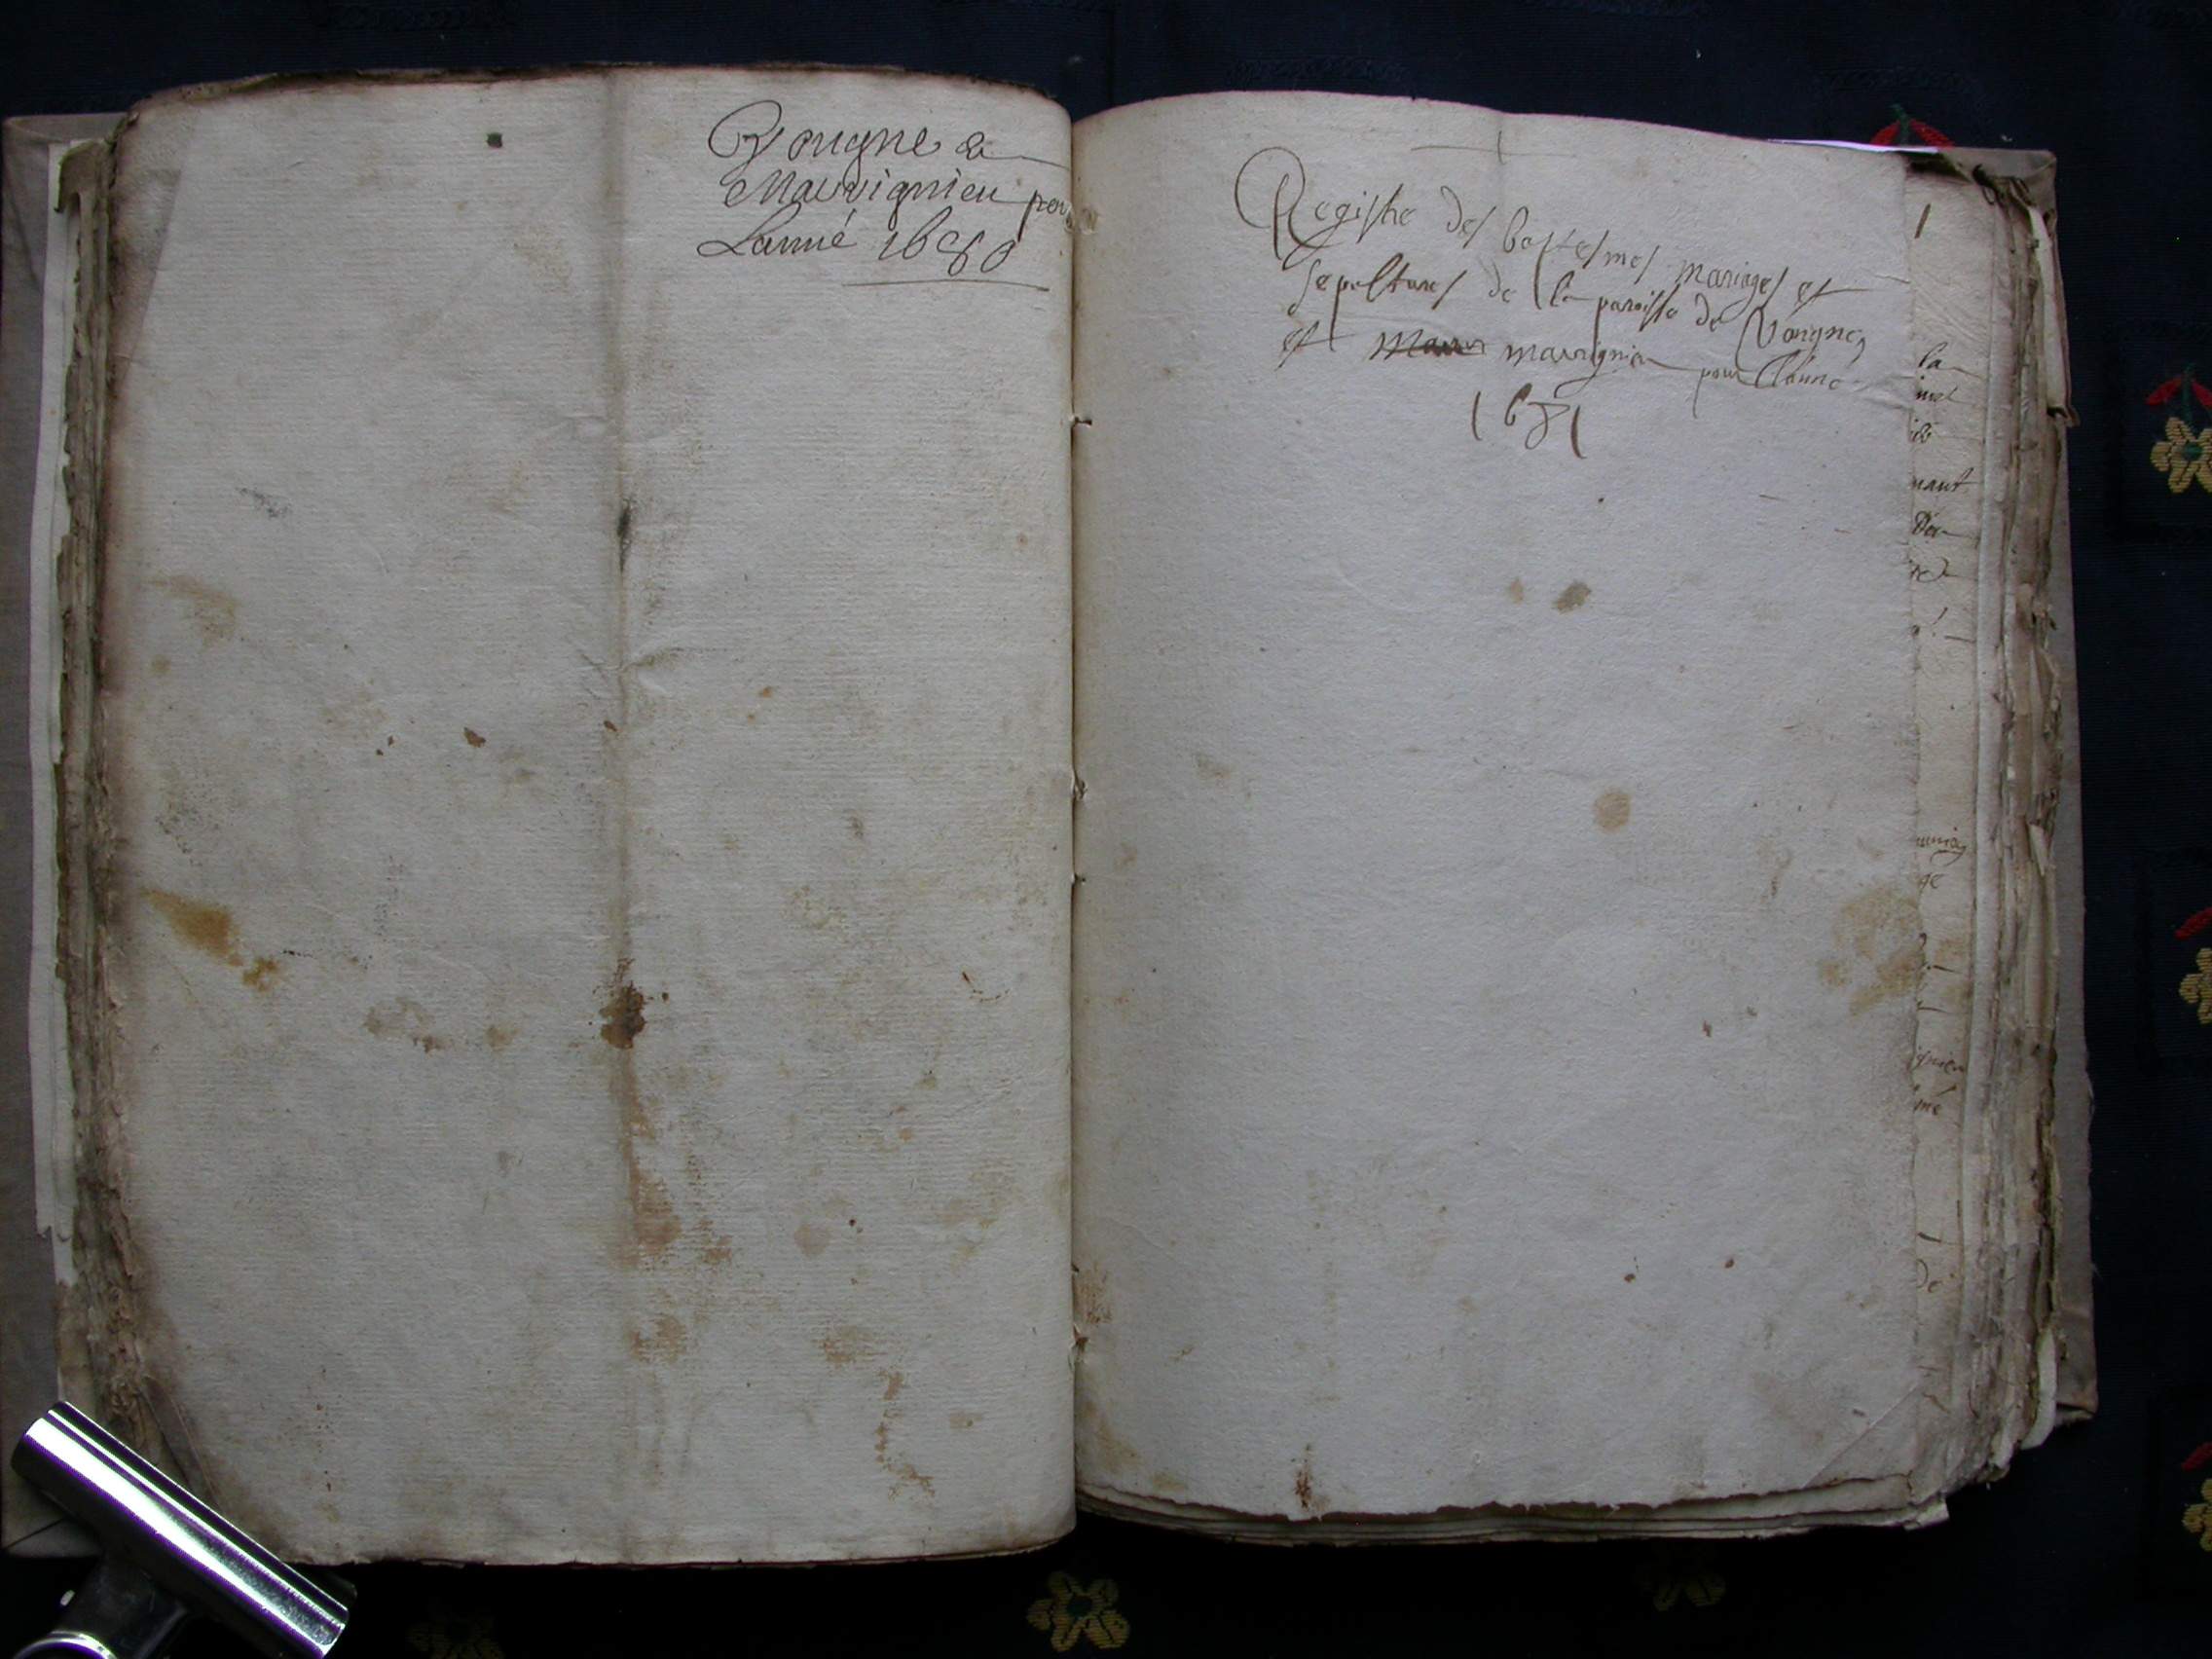 Bougne &
Mauvignieu pour
Lanné 1680
Registre des baptesmes mariages et
sepultures de la paroisse de Bougne,
et mauvignieu pour l'année
1681
1
la
nant
ge
de